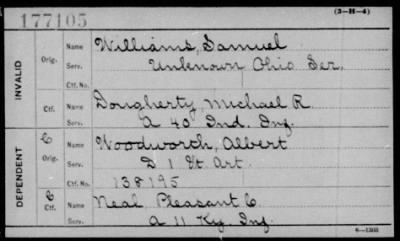 177105
(3-H-4)
INVALID
Orig.
Name
Williams, Samuel
Serv.
Unknown Ohio Ser.
Ctf. No.
Ctf.
Name
Dougherty, Michael R.
Serv.
A 40 Ind. Inf.
DEPENDENT
C
Orig.
Name
Woodworth, Albert
Serv.
D 1 Vt. Art.
Ctf. No.
138195
C
Ctf.
Name
Neal Pleasant C
Serv.
A 11 Ky. Inf.